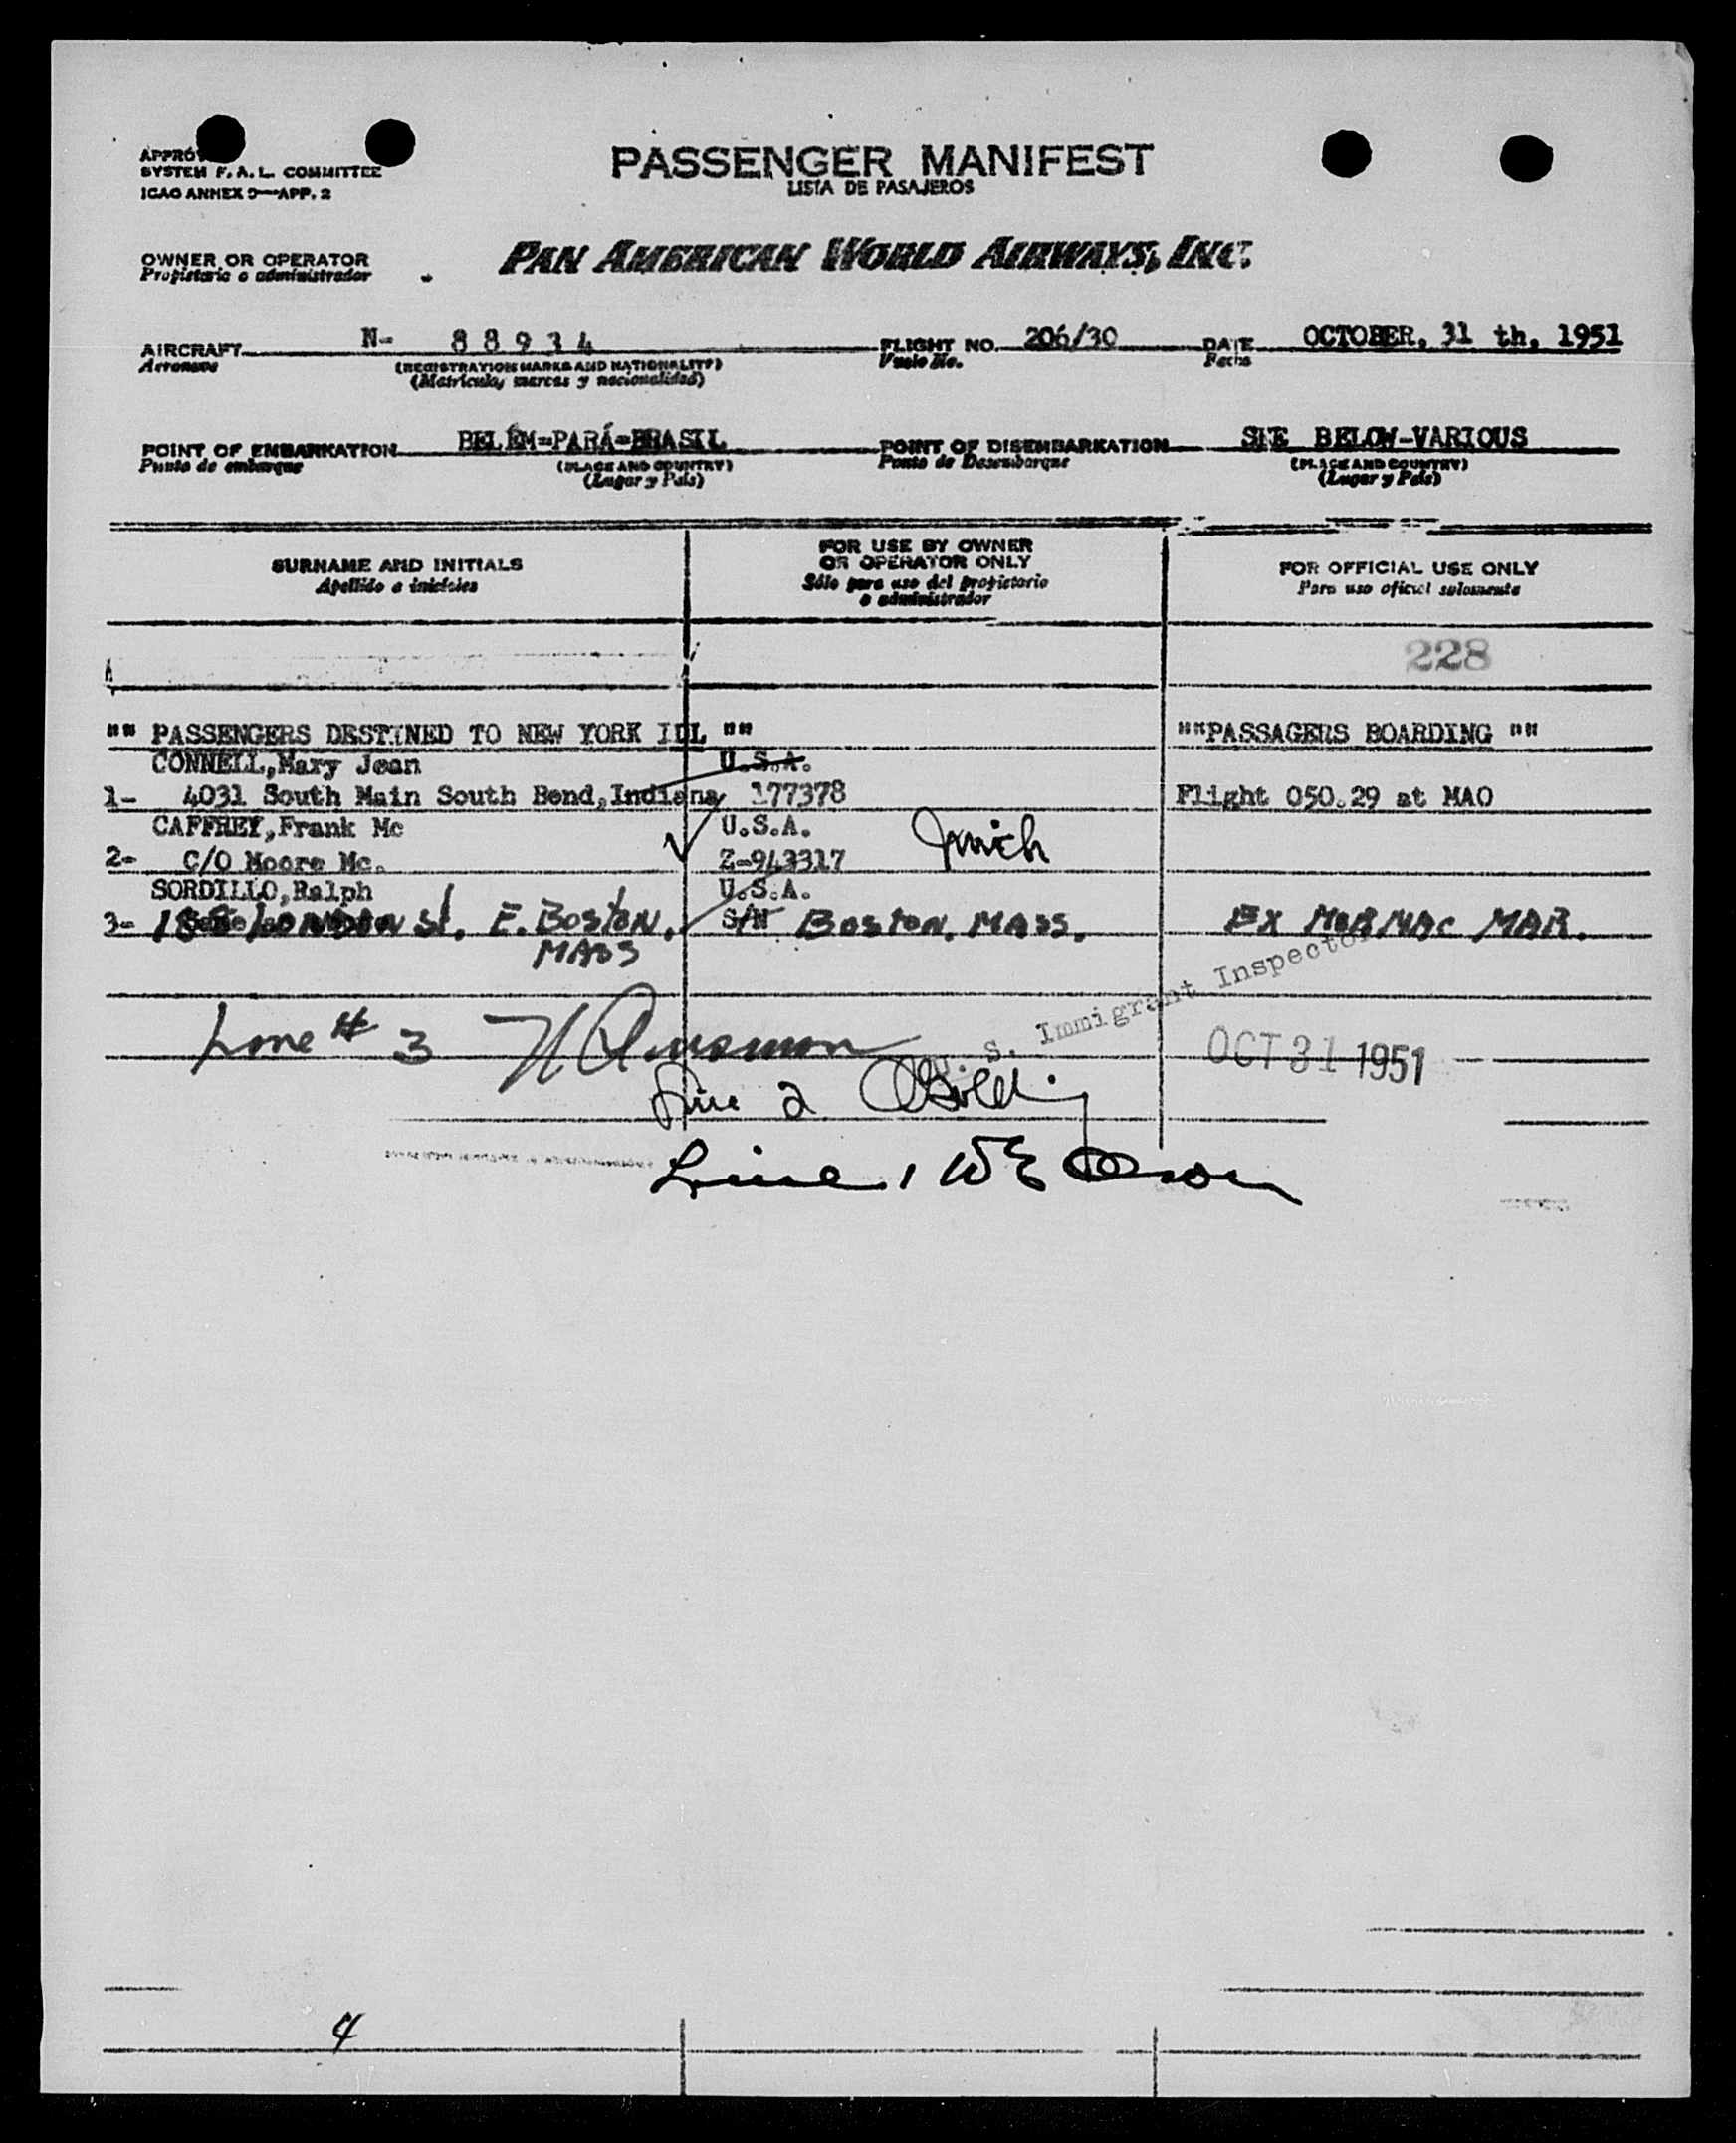 PASSENGER MANIFEST
LISTA DE PASAJEROS
SYSTEM F. A. L. COMMITTEE
ICAO ANNEX 9—APP. 2
OWNER OR OPERATOR
Propietario o administrador
PAN AMERICAN WORLD AIRWAYS, INC.
AIRCRAFT N- 88934 FLIGHT NO. 206/30 DATE OCTOBER, 31 th, 1951
Aeronave (REGISTRATION MARKS AND NATIONALITY) Vuelo No. Fecha
(Matricula, marcas y nacionalidad)
POINT OF EMBARKATION BELÉM-PARÁ-BRASIL POINT OF DISEMBARKATION SEE BELOW-VARIOUS
Punto de embarque (PLACE AND COUNTRY) Punto de Desembarque (PLACE AND COUNTRY)
(Lugar y País) (Lugar y País)
SURNAME AND INITIALS FOR USE BY OWNER OR OPERATOR ONLY FOR OFFICIAL USE ONLY
Apellido e iniciales Sólo para uso del propietario o administrador Para uso oficial solamente
228
"" PASSENGERS DESTINED TO NEW YORK IDL "" ""PASSAGERS BOARDING ""
CONNELL,Mary Jean U.S.A.
1- 4031 South Main South Bend,Indiana 177378 Flight 050.29 at MAO
CAFFREY,Frank Mc U.S.A.
2- C/O Moore Mc. Z-943317
SORDILLO,Ralph U.S.A.
3- 188 LONDON St. E. BOSTON. S/N BOSTON. MASS. EX MORMAC MAR.
MASS
U. S. Immigrant Inspector
Line # 3
OCT 31 1951
Line 2
Line 1 WE Olson
4